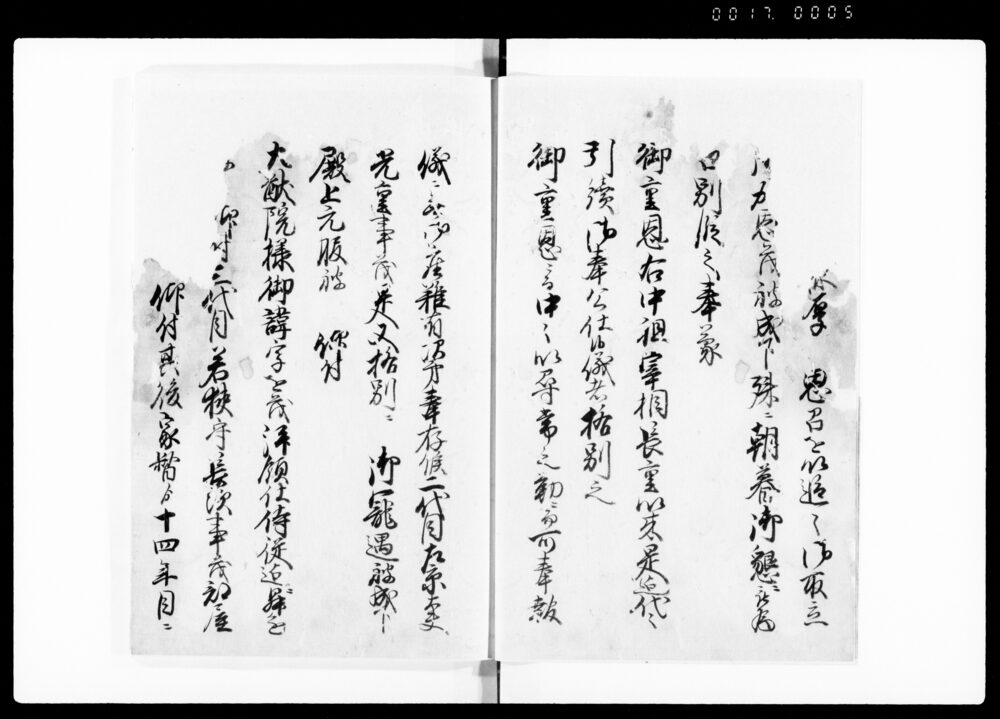 0017. 0005
深厚 思召を以追々御取立
御力恩茂被成下殊ニ朝暮御懇ニ被為
口別段之奉蒙
御重恩右中祖宰相長重以来是迄代々
引続御奉公仕候儀者格別之
御重恩ニ而中々以尋常之勤ニ而可奉報
儀ニ無御座難有次第奉存候二代目左京大夫
光重事茂是又格別ニ 御寵遇被成下
殿上元服被 仰付
大猷院様御諱字を茂拝領仕侍従迄昇進
仰付三代目若狭守長次事茂部屋
仰付其後家督より十四年目ニ